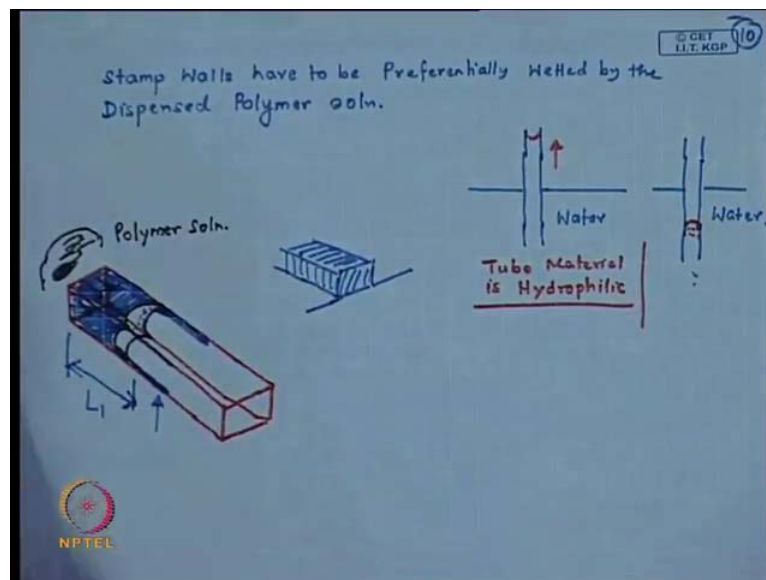 © CET
I.I.T. KGP
10
Stamp Walls have to be Preferentially Wetted by the
Dispensed Polymer soln.
Polymer Soln.
Water
Water
Tube Material
is Hydrophilic
L1
NPTEL